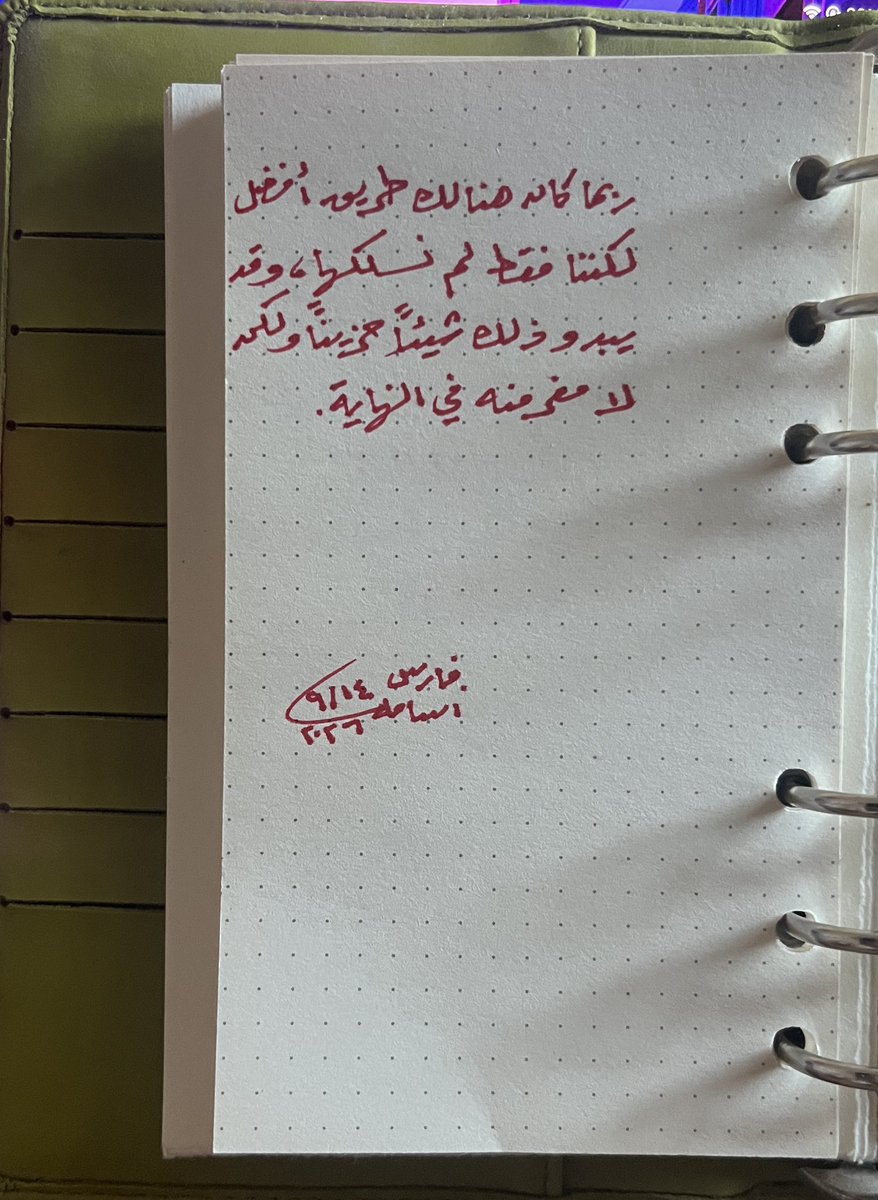 ربما كان هنالك طريق أفضل
لكننا فقط لم نسلكها، وقد
يبدو ذلك شيئاً حزيناً ولكن
لا مفر منه في النهاية.
فارس ٩/١٤
٢٠٢٦